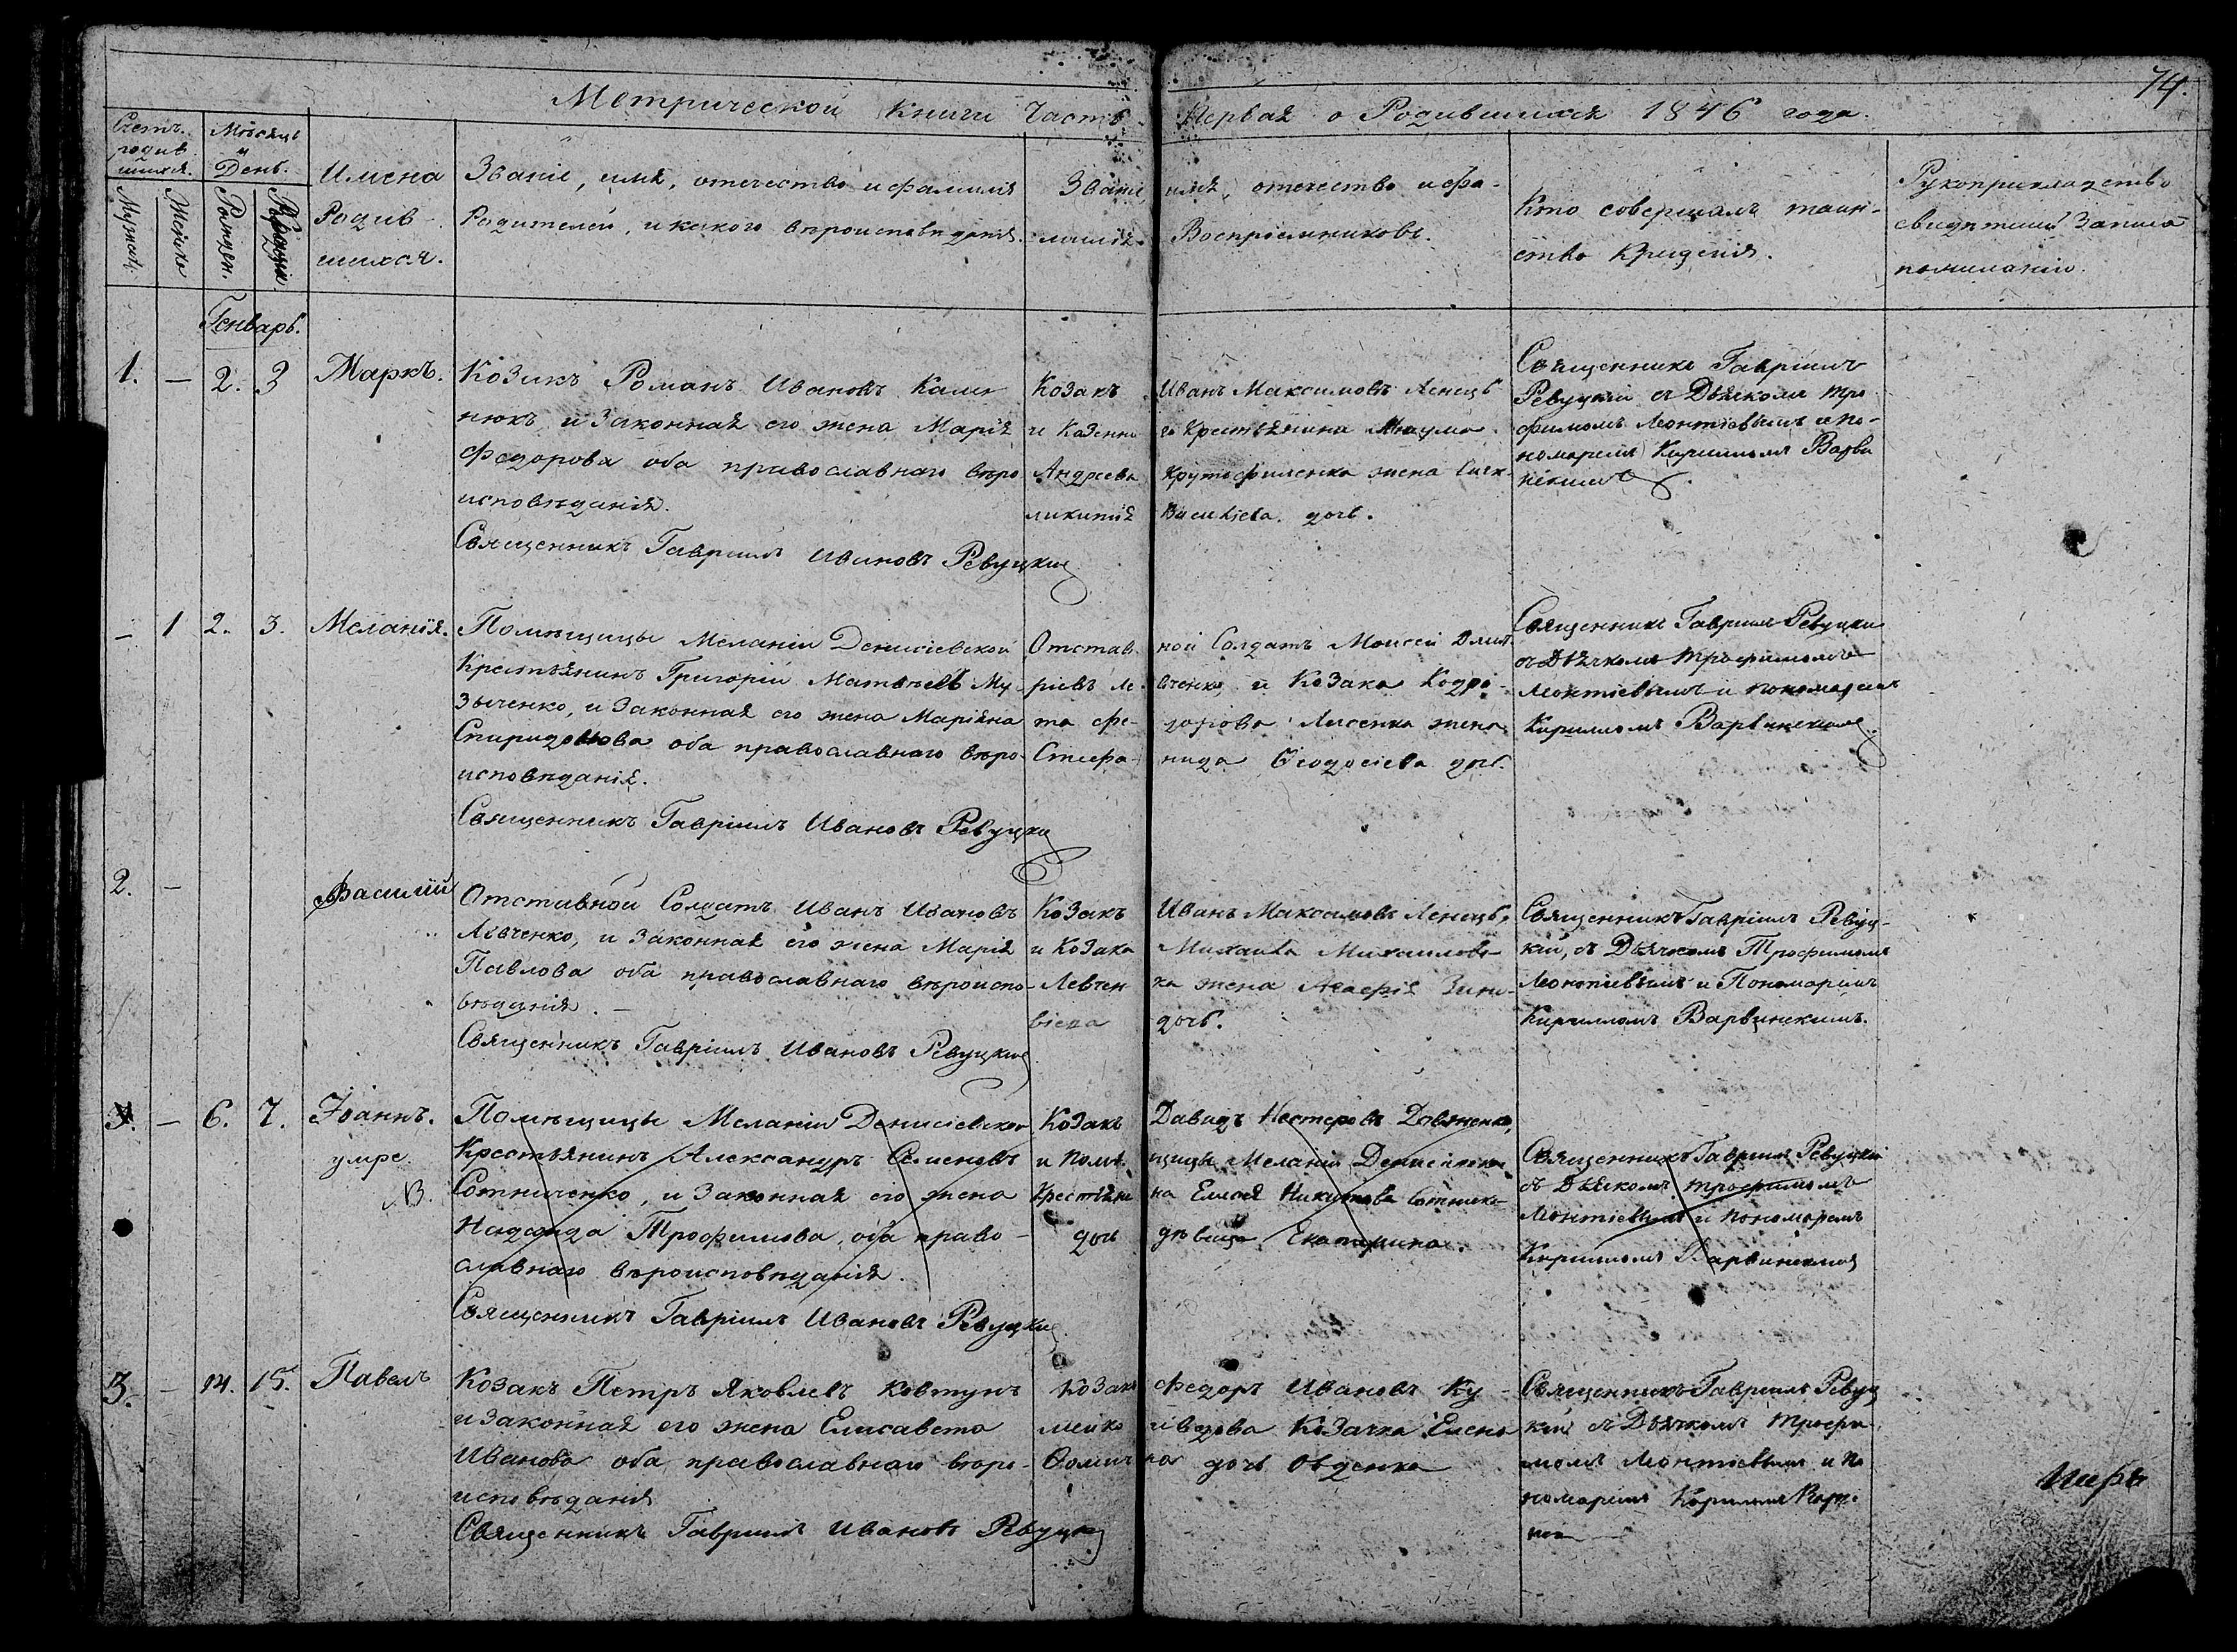 74.
Метрической Книги Часть Первая о Родившихся 1846 года.
Счетъ родив шихся.
Мѣсяцъ и День.
Мужеска
Женска
Рожден.
Имена Родив- шихся.
Званіе, имя, отечество и фамилія
Родителей, и какого вѣроисповѣданія.
Званіе имя, отечество и фа-
милія Воспріемниковъ.
Кто совершалъ таин-
ство Крещенія.
Рукоприкладство
свидѣтелей записа
по желанію.
Генварь.
1. — 2. 3 Маркъ.
Козакъ Романъ Ивановъ
нюкъ и Законная его жена Марія
Федорова оба православнаго вѣро
исповѣданія.
Священникъ Гавріилъ Ивановъ Ревуцкий
Козакъ Иванъ Максимовъ Ленецъ
и Казенна го Крестьянина
Андреева жена
дочь.
Священникъ Гавріилъ
Ревуцкій съ Дьячкомъ Тро
фимомъ Леонтіевымъ и По-
номаремъ Кириломъ Варви
нскимъ.
— 1 2. 3. Меланія.
Помѣщицы Меланіи Денисіевской
Крестьянинъ Григорій Матвѣевъ Му-
зыченко, и Законная его жена Маріяна
Спиридонова оба православнаго вѣро-
исповѣданія.
Священникъ Гавріилъ Ивановъ Ревуцкий
Отстав- ной Солдатъ Моисей Дмит
ріевъ Ле- вченко, и Козака Кодра-
та Фе- дорова Лисенка жена
Стефа- нида Феодосіева дочь.
Священникъ Гавріилъ Ревуцкий
съ Дьячкомъ Трофимомъ
Леонтіевымъ и пономаремъ
Кириломъ Варвинскимъ
2. — Василій
Отставной Солдатъ Иванъ Ивановъ
Левченко, и Законная его жена Марія
Павлова оба православнаго вѣроиспо-
вѣданія. —
Священникъ Гавріилъ Ивановъ Ревуцкий
Козакъ Иванъ Максимовъ Ленецъ,
и Козака Михаила Михаилова
Левчен- ка жена Зино-
віева дочь.
Священникъ Гавріилъ Ревуц-
кій, съ Дьячкомъ Трофимомъ
Леонтіевымъ и Пономаремъ
Кириломъ Варвинскимъ.
3. — 6. 7. Іоаннъ.
умре.
NB.
Помѣщицы Меланіи Денисіевской
Крестьянинъ Александръ Семеновъ
Сотниченко, и Законная его жена
Трофимова, оба право-
славнаго вѣроисповѣданія.
Священникъ Гавріилъ Ивановъ Ревуцкий
Козакъ Давидъ Нестеровъ Довженко,
и Помѣ- щицы Меланіи Денисіевской
Крестьяни- на Никитова
дочь дѣвица Екатерина.
Священникъ Гавріилъ Ревуцкій
съ Дьячкомъ Трофимомъ
Леонтіевымъ и пономаремъ
Кириломъ Варвинскимъ
3. — 14. 15. Павелъ
Козакъ Петръ Яковлевъ Ковтунъ
и Законная его жена Елисавета
Иванова оба православнаго вѣро-
исповѣданія
Священникъ Гавріилъ Ивановъ Ревуцкий
Козакъ Федоръ Ивановъ Ку-
мейко Козачка Елена
дочь
Священникъ Гавріилъ Ревуц
кій съ Дьячкомъ Трофи-
момъ Леонтіевымъ и По
номаремъ Кириломъ